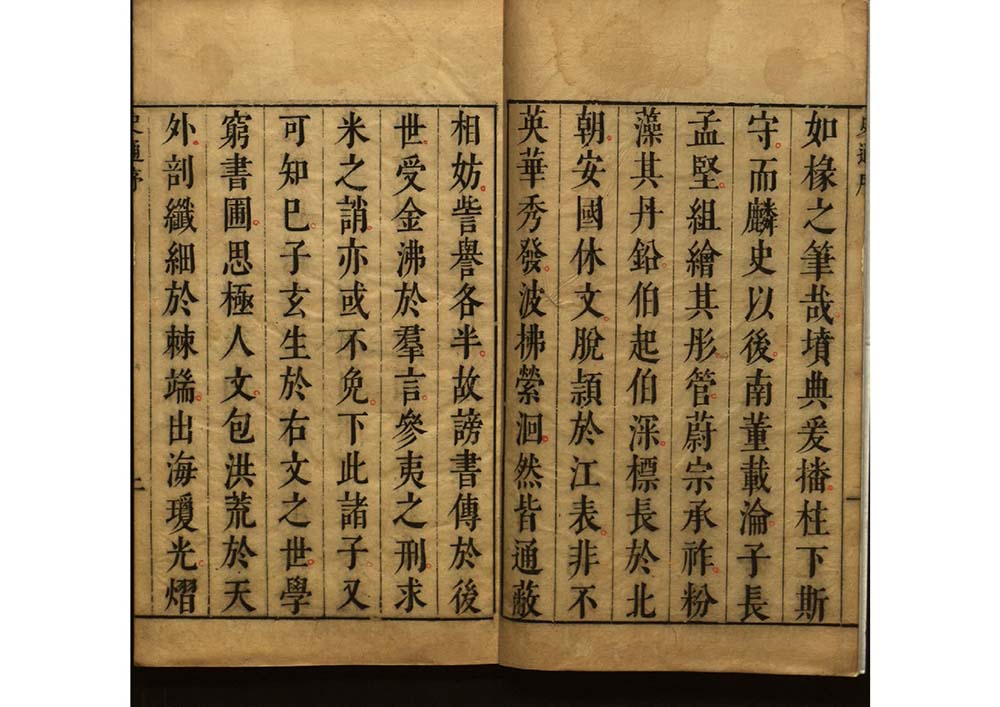 史通序
如椽之筆哉墳典爰播柱下斯
守而麟史以後南董載淪子長
孟堅組繪其彤管蔚宗承祚粉
藻其丹鉛伯起伯深標長於北
朝安國休文脫頴於江表非不
英華秀發波拂縈洄然皆通蔽
相妨訾譽各半故謗書傳於後
世受金沸於羣言參夷之刑求
米之誚亦或不免下此諸子又
可知巳子玄生於右文之世學
窮書圃思極人文包洪荒於天
外剖纖細於棘端出海瓊光熠
史通序